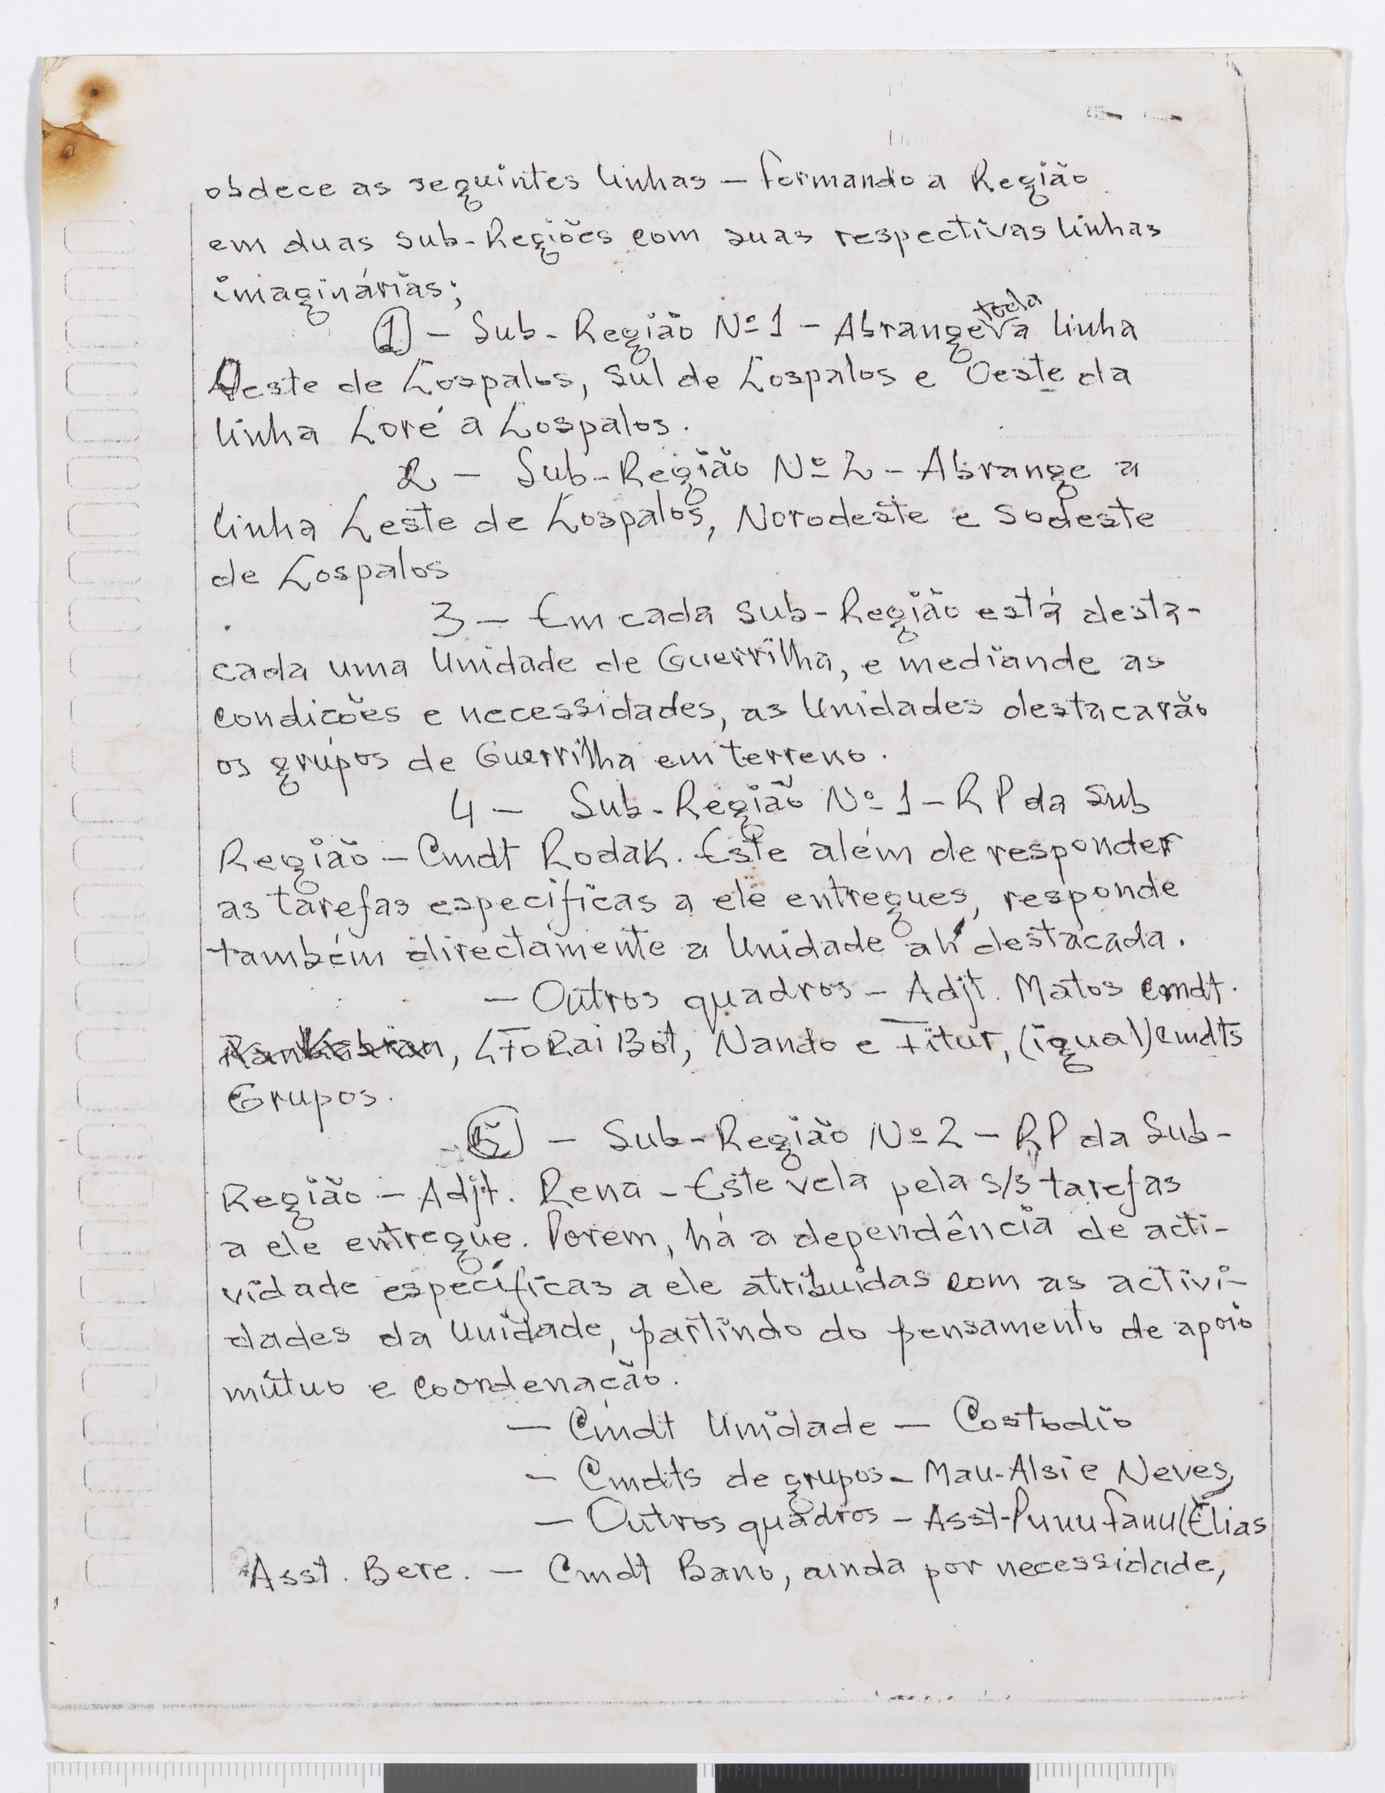 obdece as seguintes linhas – formando a Região
em duas sub-Regiões com suas respectivas linhas
imaginárias;
1 – Sub-Região Nº 1 – Abrange toda a linha
Oeste de Lospalos, Sul de Lospalos e Oeste da
linha Loré a Lospalos.
2 – Sub-Região Nº 2 – Abrange a
linha Leste de Lospalos, Norodeste e Sodeste
de Lospalos
3 – Em cada sub-Região está desta-
cada uma Unidade de Guerrilha, e mediande as
condições e necessidades, as Unidades destacarão
os grupos de Guerrilha em terreno.
4 – Sub-Região Nº 1 – RP da Sub
Região – Cmdt Rodak. Este além de responder
as tarefas especificas a ele entregues, responde
também directamente a Unidade ali destacada.
– Outros quadros – Adjt. Matos cmdt.
, Rai Bot, Nando e Titur, (igual) cmdts
Grupos.
5 – Sub-Região Nº 2 – RP da Sub-
Região – Adjt. Rena – Este vela pela s/s tarefas
a ele entregue. Porem, há a dependência de acti-
vidade específicas a ele atribuidas com as activi-
dades da Unidade, partindo do pensamento de apoio
mútuo e coordenação.
– Cmdt Unidade – Costodio
– Cmdts de grupos – Mau-Alsi e Neves,
– Outros quadros – Asst-Punufanu (Elias
Asst. Bere. – Cmdt Bano, ainda por necessidade,